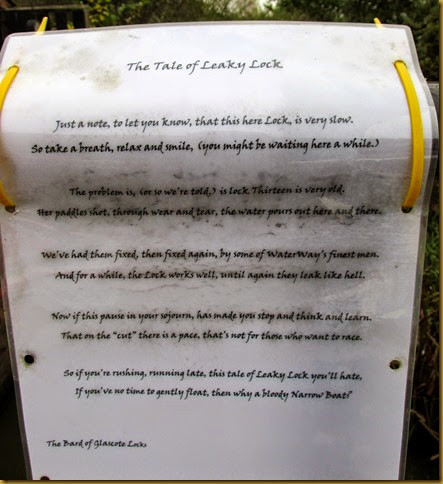 The Tale of Leaky Lock
Just a note, to let you know, that this here Lock, is very slow.
So take a breath, relax and smile, (you might be waiting here a while.)
The problem is, (or so we're told,) is lock Thirteen is very old.
Her paddles shot, through wear and tear, the water pours out here and there.
We've had them fixed, then fixed again, by some of WaterWay's finest men.
And for a while, the Lock works well, until again they leak like hell.
Now if this pause in your sojourn, has made you stop and think and learn.
That on the "cut" there is a pace, that's not for those who want to race.
So if you're rushing, running late, this tale of Leaky Lock you'll hate,
If you've no time to gently float, then why a bloody Narrow Boat?
The Bard of Glascote Locks